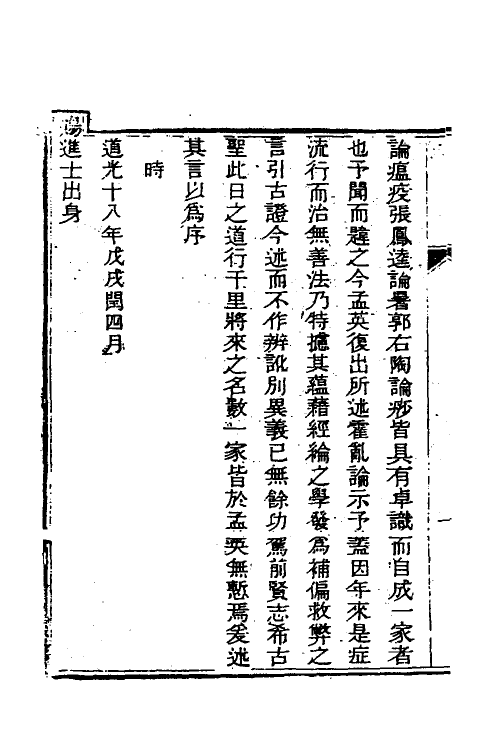 論瘟疫張鳳逵論暑郭右陶論痧皆具有卓識而自成一家者
也予聞而韙之今孟英復出所述霍亂論示予蓋因年來是症
流行而治無善法乃特攄其蘊藉經綸之學發爲補偏救弊之
言引古證今述而不作辨訛別異義已無餘功駕前賢志希古
聖此日之道行千里將來之名數一家皆於孟英無慙焉爰述
其言以爲序
時
道光十八年戊戌閏四月
賜進士出身